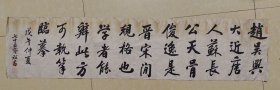 趙吳興
大近唐
人蘇長
公天骨
俊逸是
晉宋間
規格也
学者能
解此方
可執筆
臨摹
戊午仲夏